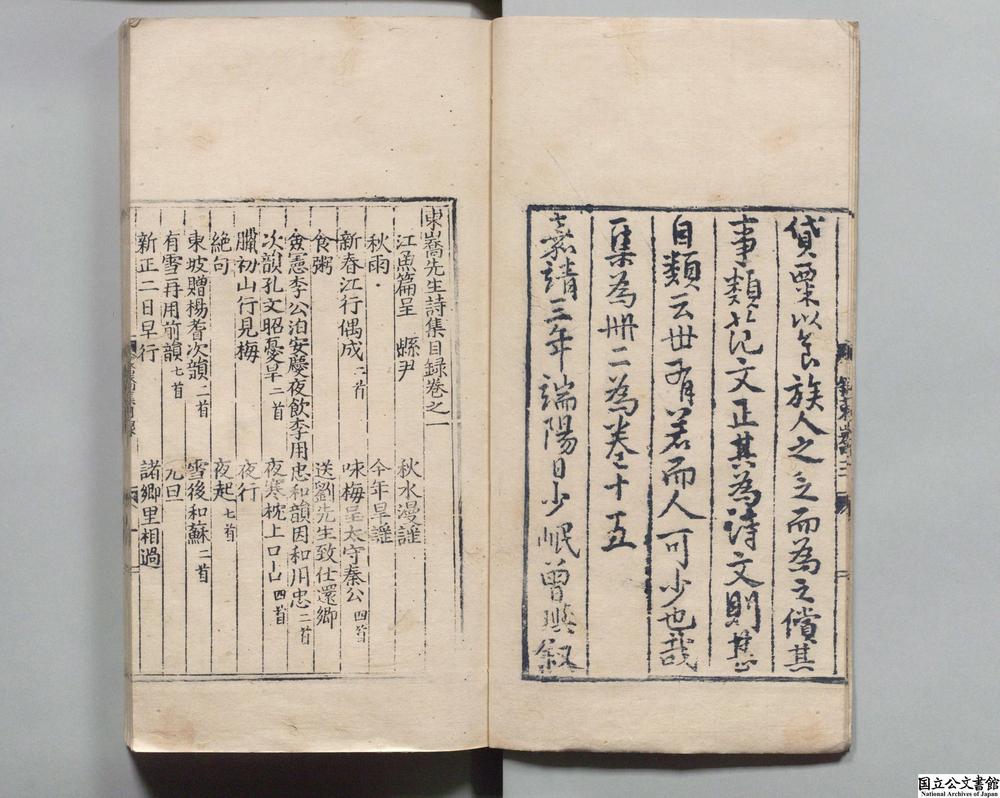 貸粟以食族人之乏而為之償其
事類范文正其為詩文則甚
自類云世有若而人可少也哉
集為冊二為卷十五
嘉靖三年端陽日少岷曾璵叙
東嵓先生詩集目録卷之一
江魚篇呈 縣尹 秋水漫謡
秋雨 今年旱謡
新春江行偶成 二首 味梅呈太守秦公 四首
食粥 送劉先生致仕還鄉
僉憲李公泊安慶夜飲李用忠和韻因和用忠 二首
次韻孔文昭憂旱 二首 夜寒枕上口占 四首
臘初山行見梅 夜行
絶句 夜起 七首
東坡贈楊耆次韻 二首 雪後和蘇 二首
有雪再用前韻 七首 元旦
新正二日早行 諸鄉里相過
国立公文書館
National Archives of Japan